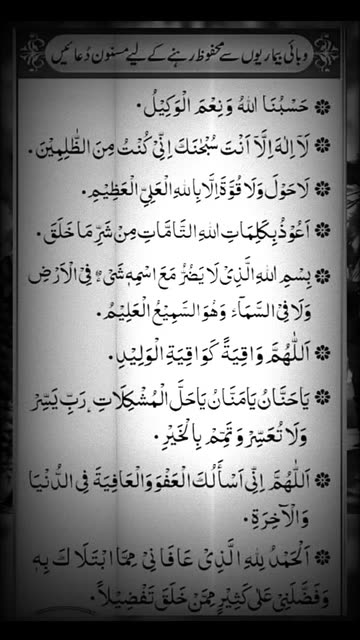 وبائی بیماریوں سے محفوظ رہنے کے لیے مسنون دُعائیں
حَسْبُنَا اللهُ وَنِعْمَ الْوَكِيْلُ.
لَآ اِلٰهَ اِلَّآ اَنْتَ سُبْحٰنَكَ اِنِّيْ كُنْتُ مِنَ الظّٰلِمِيْنَ.
لَا حَوْلَ وَلَا قُوَّةَ اِلَّا بِاللهِ الْعَلِيِّ الْعَظِيْمِ.
اَعُوْذُ بِكَلِمَاتِ اللهِ التَّامَّاتِ مِنْ شَرِّ مَا خَلَقَ.
بِسْمِ اللهِ الَّذِيْ لَا يَضُرُّ مَعَ اسْمِهٖ شَيْءٌ فِي الْاَرْضِ
وَلَا فِي السَّمَآءِ وَهُوَ السَّمِيْعُ الْعَلِيْمُ.
اَللّٰهُمَّ وَاقِيَةً كَوَاقِيَةِ الْوَلِيْدِ.
يَا حَنَّانُ يَا مَنَّانُ يَا حَلَّ الْمُشْكِلَاتِ، رَبِّ يَسِّرْ
وَلَا تُعَسِّرْ وَتَمِّمْ بِالْخَيْرِ.
اَللّٰهُمَّ اِنِّيْ اَسْأَلُكَ الْعَفْوَ وَالْعَافِيَةَ فِي الدُّنْيَا
وَالْاٰخِرَةِ.
اَلْحَمْدُ لِلهِ الَّذِيْ عَافَانِيْ مِمَّا ابْتَلَاكَ بِهٖ
وَفَضَّلَنِيْ عَلٰى كَثِيْرٍ مِمَّنْ خَلَقَ تَفْضِيْلًا.